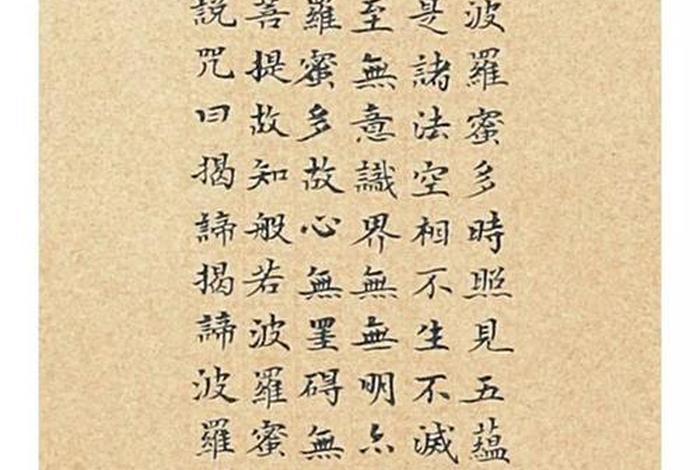 波羅蜜多時照見五蘊
是諸法空相不生不滅
至無意識界無無明亦
羅蜜多故心無罣碍無
菩提故知般若波羅蜜
說咒曰揭諦揭諦波羅